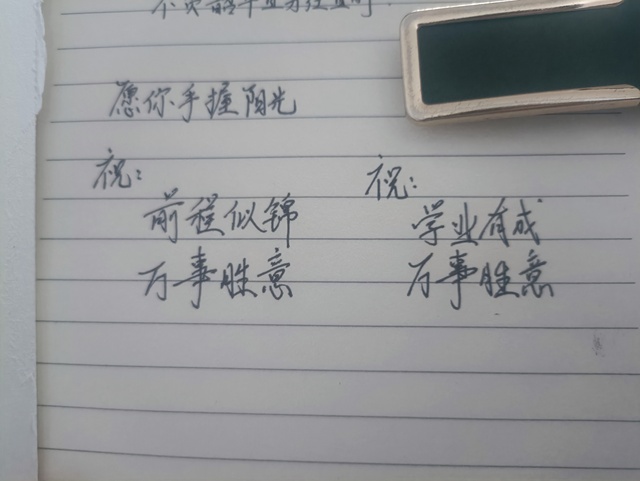 愿你手握阳光
祝:
前程似锦
万事胜意
祝:
学业有成
万事胜意